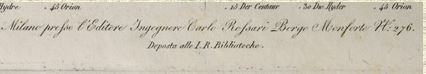 Hydre . 45 Orion . 15 Der Centaur . 30 Die Hyder . 45 Orion
Milano presso l'Editore Ingegnere Carlo Rossari Borgo Monforte N.º 276.
Deposta alle I. R. Biblioteche.